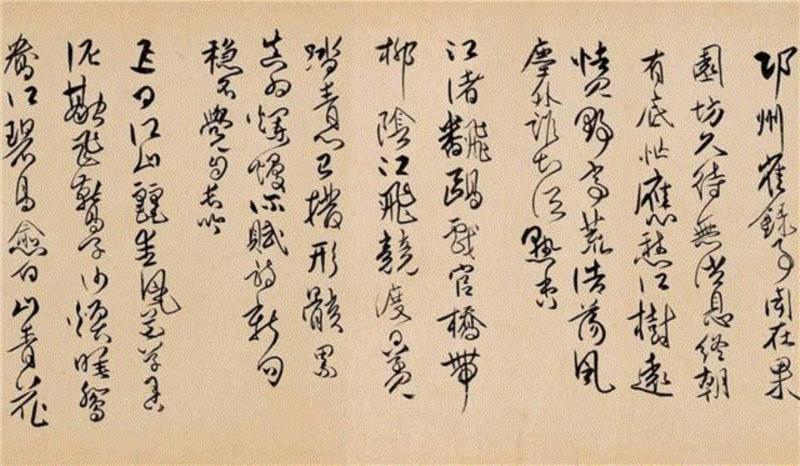 邛州崔録事聞在果
園坊久待無消息終朝
有底忙應愁江樹遠
怯見野亭荒浩蕩風
塵外誰知酒熟香
江渚飜鷗戲官橋帶
柳陰江飛競渡日草
踏青心已撥形骸累
真為爛熳深賦詩新句
穩不覺自長吟
遲日江山麗春風花草香
泥融飛鷰子沙煖睡鴛
鴦江碧鳥愈白山青花